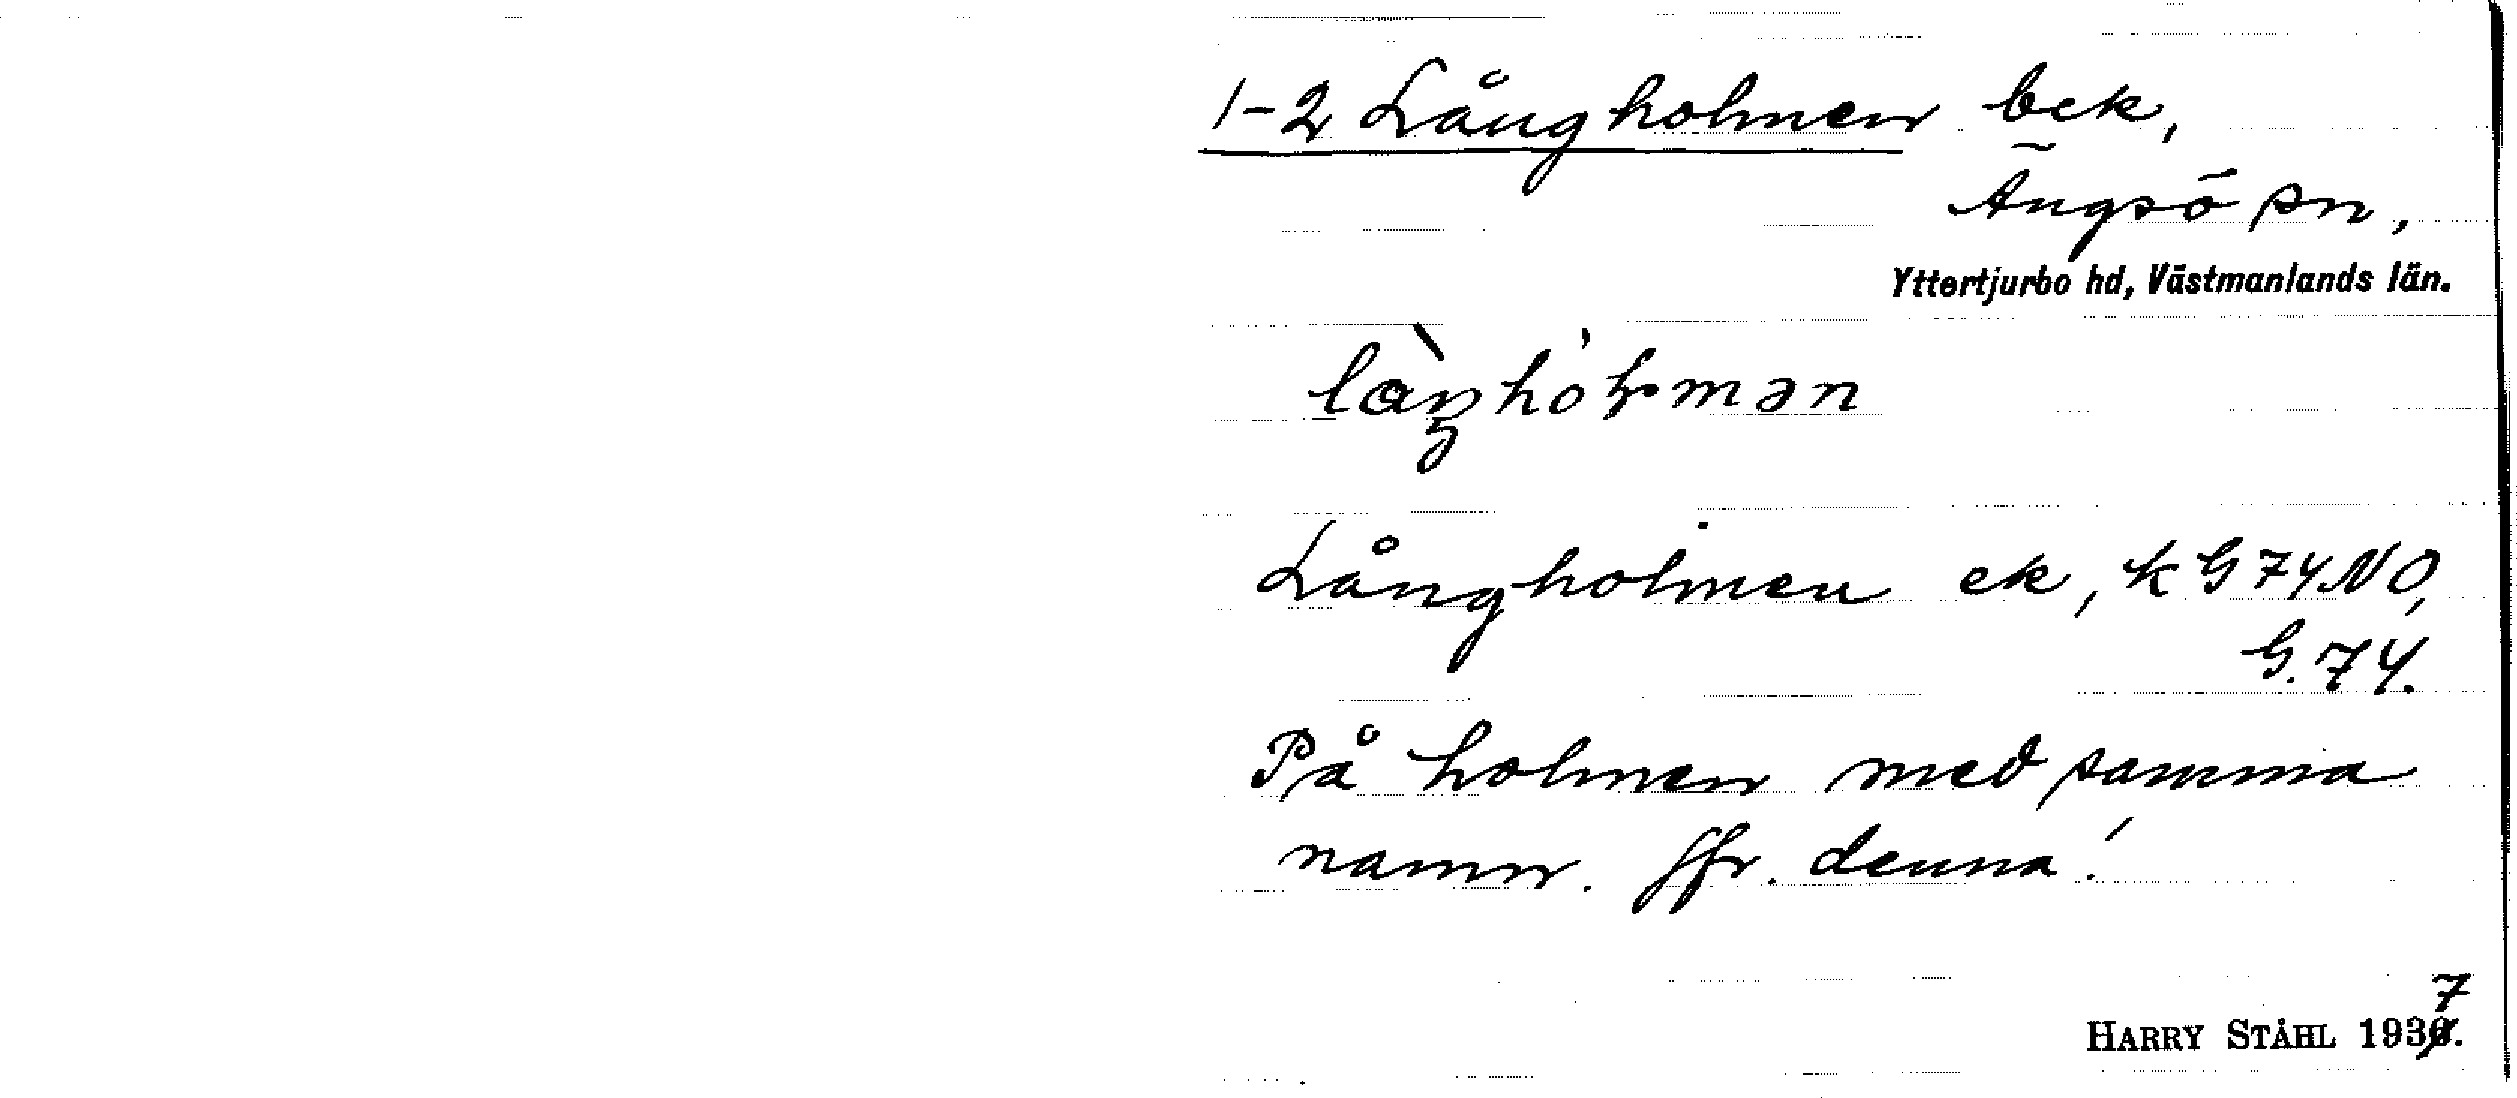 1-2 Långholmen bek,
Ängsö sn,
Yttertjurbo hd, Västmanlands län.
Långholmen ek, k G 74 NO,
G. 74.
På holmen med samma
namn. Jfr. denna!
7
HARRY STÅHL 1936.